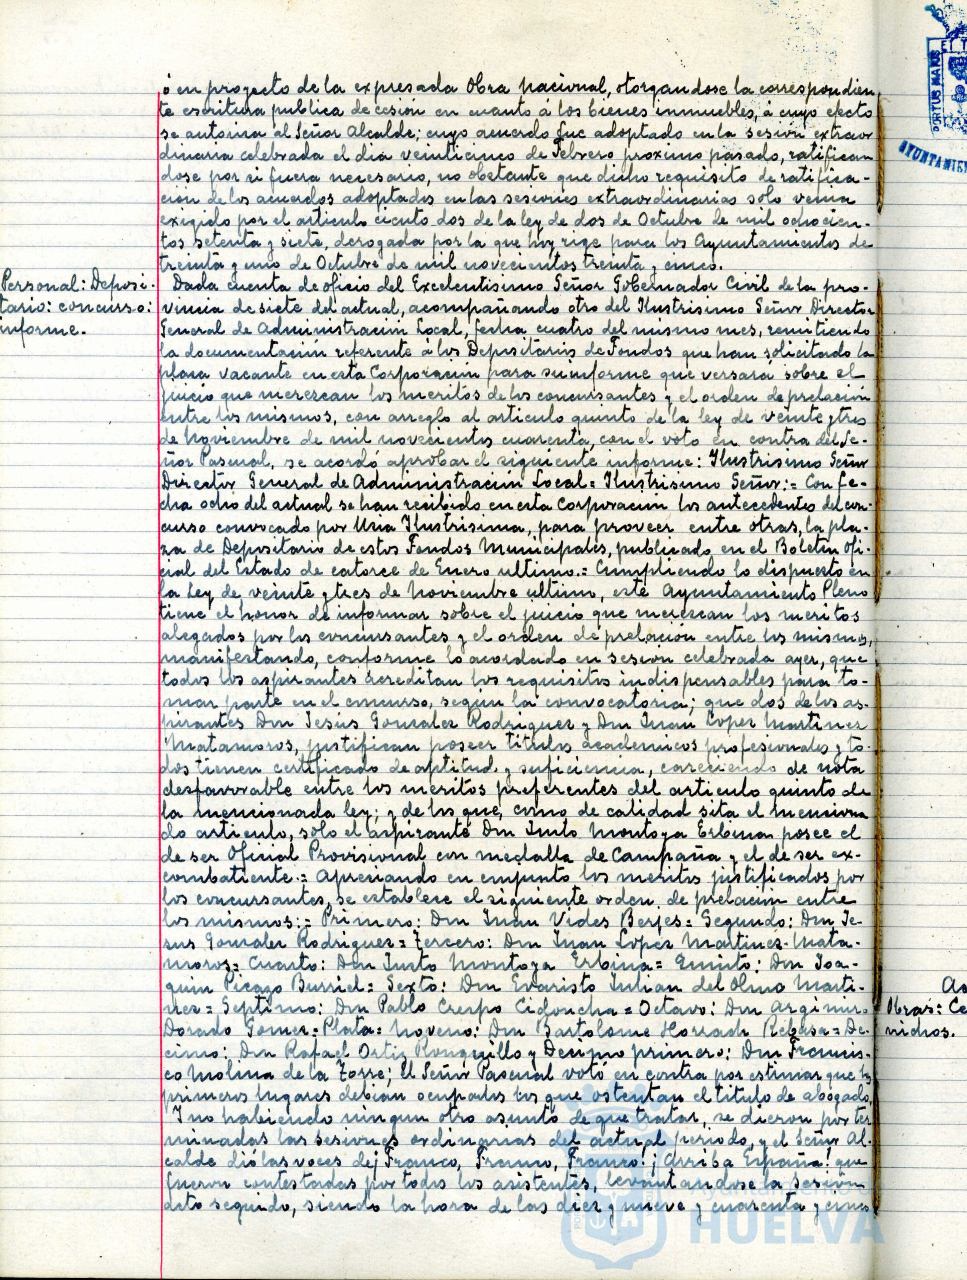 ó en proyecto de la expresada Obra Nacional, otorgandose la correspondien-
te escritura publica de cesión en cuanto á los bienes inmuebles, á cuyo efecto
se autoriza al Señor Alcalde; cuyo acuerdo fue adoptado en la sesión extraor
dinaria celebrada el dia veinticinco de Febrero proximo pasado, ratifican
dose por si fuera necesario, no obstante que dicho requisito de ratifica-
cion de los acuerdos adoptados en las sesiones extraordinarias sólo venia
exigido por el articulo ciento dos de la ley de dos de Octubre de mil ochocien-
tos setenta y siete, derogada por la que hoy rige para los Ayuntamientos de
treinta y uno de Octubre de mil novecientos treinta y cinco.
Personal: Deposi-
tario: concurso:
informe.
Dada cuenta de oficio del Excelentisimo Señor Gobernador Civil de la pro-
vincia de siete del actual, acompañando otro del Ilustrisimo Señor Director
General de Administración Local, fecha cuatro del mismo mes, remitiendo
la documentación referente á los Depositarios de Fondos que han solicitado la
plaza vacante en esta Corporación para su informe que versará sobre el
juicio que merezcan los meritos de los concursantes y el orden de prelación
entre los mismos, con arreglo al articulo quinto de la ley de veinte y tres
de Noviembre de mil novecientos cuarenta, con el voto en contra del Se-
ñor Pascual, se acordó aprobar el siguiente informe: Ilustrisimo Señor
Director General de Administración Local= Ilustrisimo Señor:= Con fe-
cha ocho del actual se han recibido en esta Corporación los antecedentes del con-
curso convocado por Usia Ilustrisima, para proveer entre otras, la pla-
za de Depositario de estos Fondos Municipales, publicado en el Boletin Ofi-
cial del Estado de catorce de Enero ultimo.= Cumpliendo lo dispuesto en
la Ley de veinte y tres de Noviembre ultimo, este Ayuntamiento Pleno
tiene el honor de informar sobre el juicio que merezcan los meritos
alegados por los concursantes y el orden de prelación entre los mismos,
manifestando, conforme lo acordado en sesión celebrada ayer, que
todos los aspirantes acreditan los requisitos indispensables para to-
mar parte en el concurso, según la convocatoria; que dos de los as-
pirantes Don Jesús Gonzalez Rodriguez y Don Juan Lopez Martinez
Matamoros, justifican poseer titulos academicos profesionales y to-
dos tienen certificado de aptitud y suficiencia, careciendo de nota
desfavorable entre los meritos preferentes del articulo quinto de
la mencionada ley; y de los que, como de calidad sita el menciona
do articulo, sólo el aspirante Don Justo Montoya Erbina posee el
de ser Oficial Provisional con medalla de Campaña y el de ser ex-
combatiente.= Apreciando en conjunto los meritos justificados por
los concursantes, se establece el siguiente orden de prelación entre
los mismos:= Primero: Don Juan Vides Berjes= Segundo: Don Je-
sus Gonzalez Rodriguez= Tercero: Don Juan Lopez Martinez-Mata-
moros= Cuarto: Don Justo Montoya Erbina= Quinto: Don Joa-
quin Picazo Burriel= Sexto: Don Evaristo Julian del Olmo Marti-
nez= Septimo: Don Pablo Crespo Cidoncha= Octavo: Don Argimiro
Dorado Gomez-Plata= Noveno: Don Bartolome Horrach Rebasa= De-
cimo: Don Rafael Ortiz Ronquillo y Decimo primero: Don Francis-
co Molina de la Torre; el Señor Pascual votó en contra por estimar que los
primeros lugares debian ocuparlos los que ostentan el titulo de abogado.
Y no habiendo ningun otro asunto de que tratar, se dieron por ter
minadas las sesiones ordinarias del actual periodo, y el Señor Al-
calde dió las voces de ¡Franco, Franco, Franco! ¡Arriba España! que
fueron contestadas por todos los asistentes, levantandose la sesion
acto seguido, siendo la hora de las diez y nueve y cuarenta y cinco
Obras: Ce
nichos.
PORTUS MARIS
AYUNTAMIEN
Ayuntamiento
HUELVA